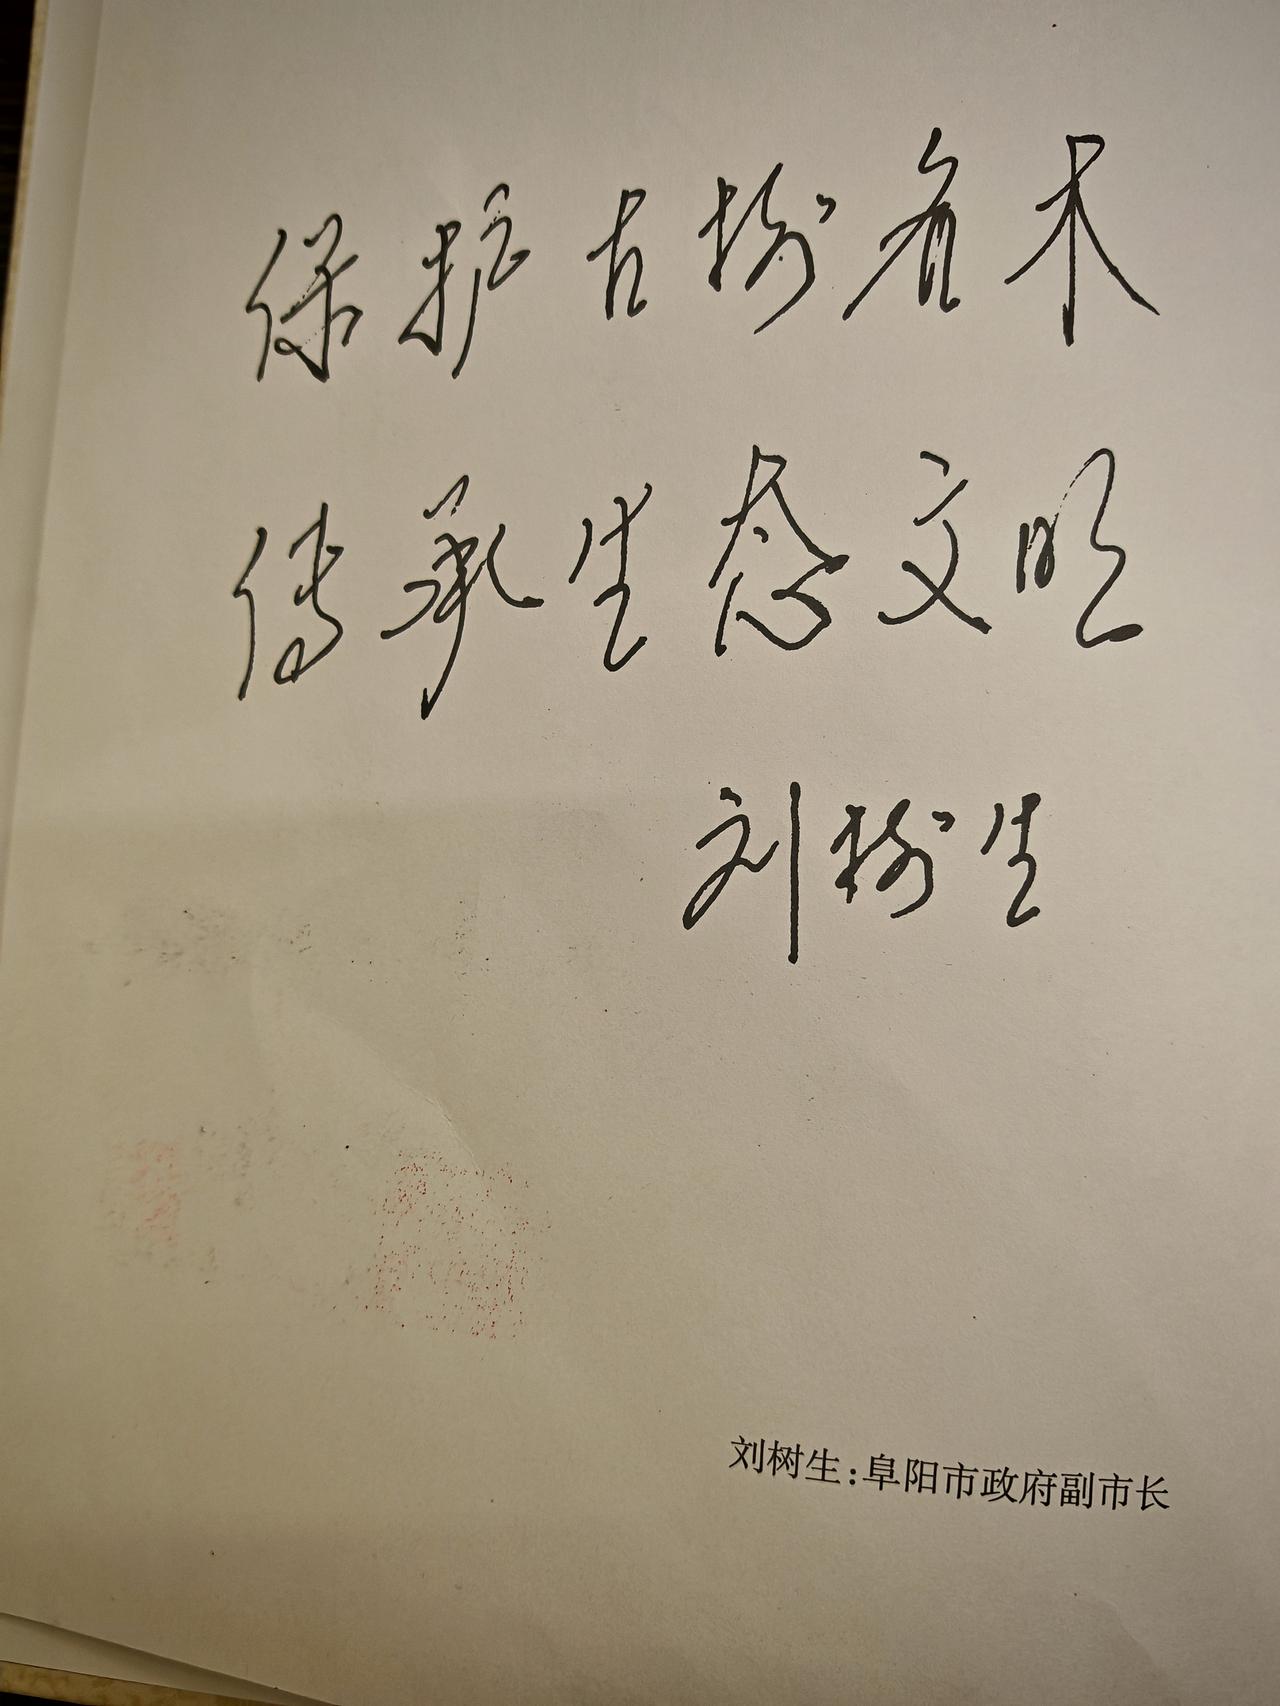 保护古树名木
传承生态文明
刘树生
刘树生:阜阳市政府副市长